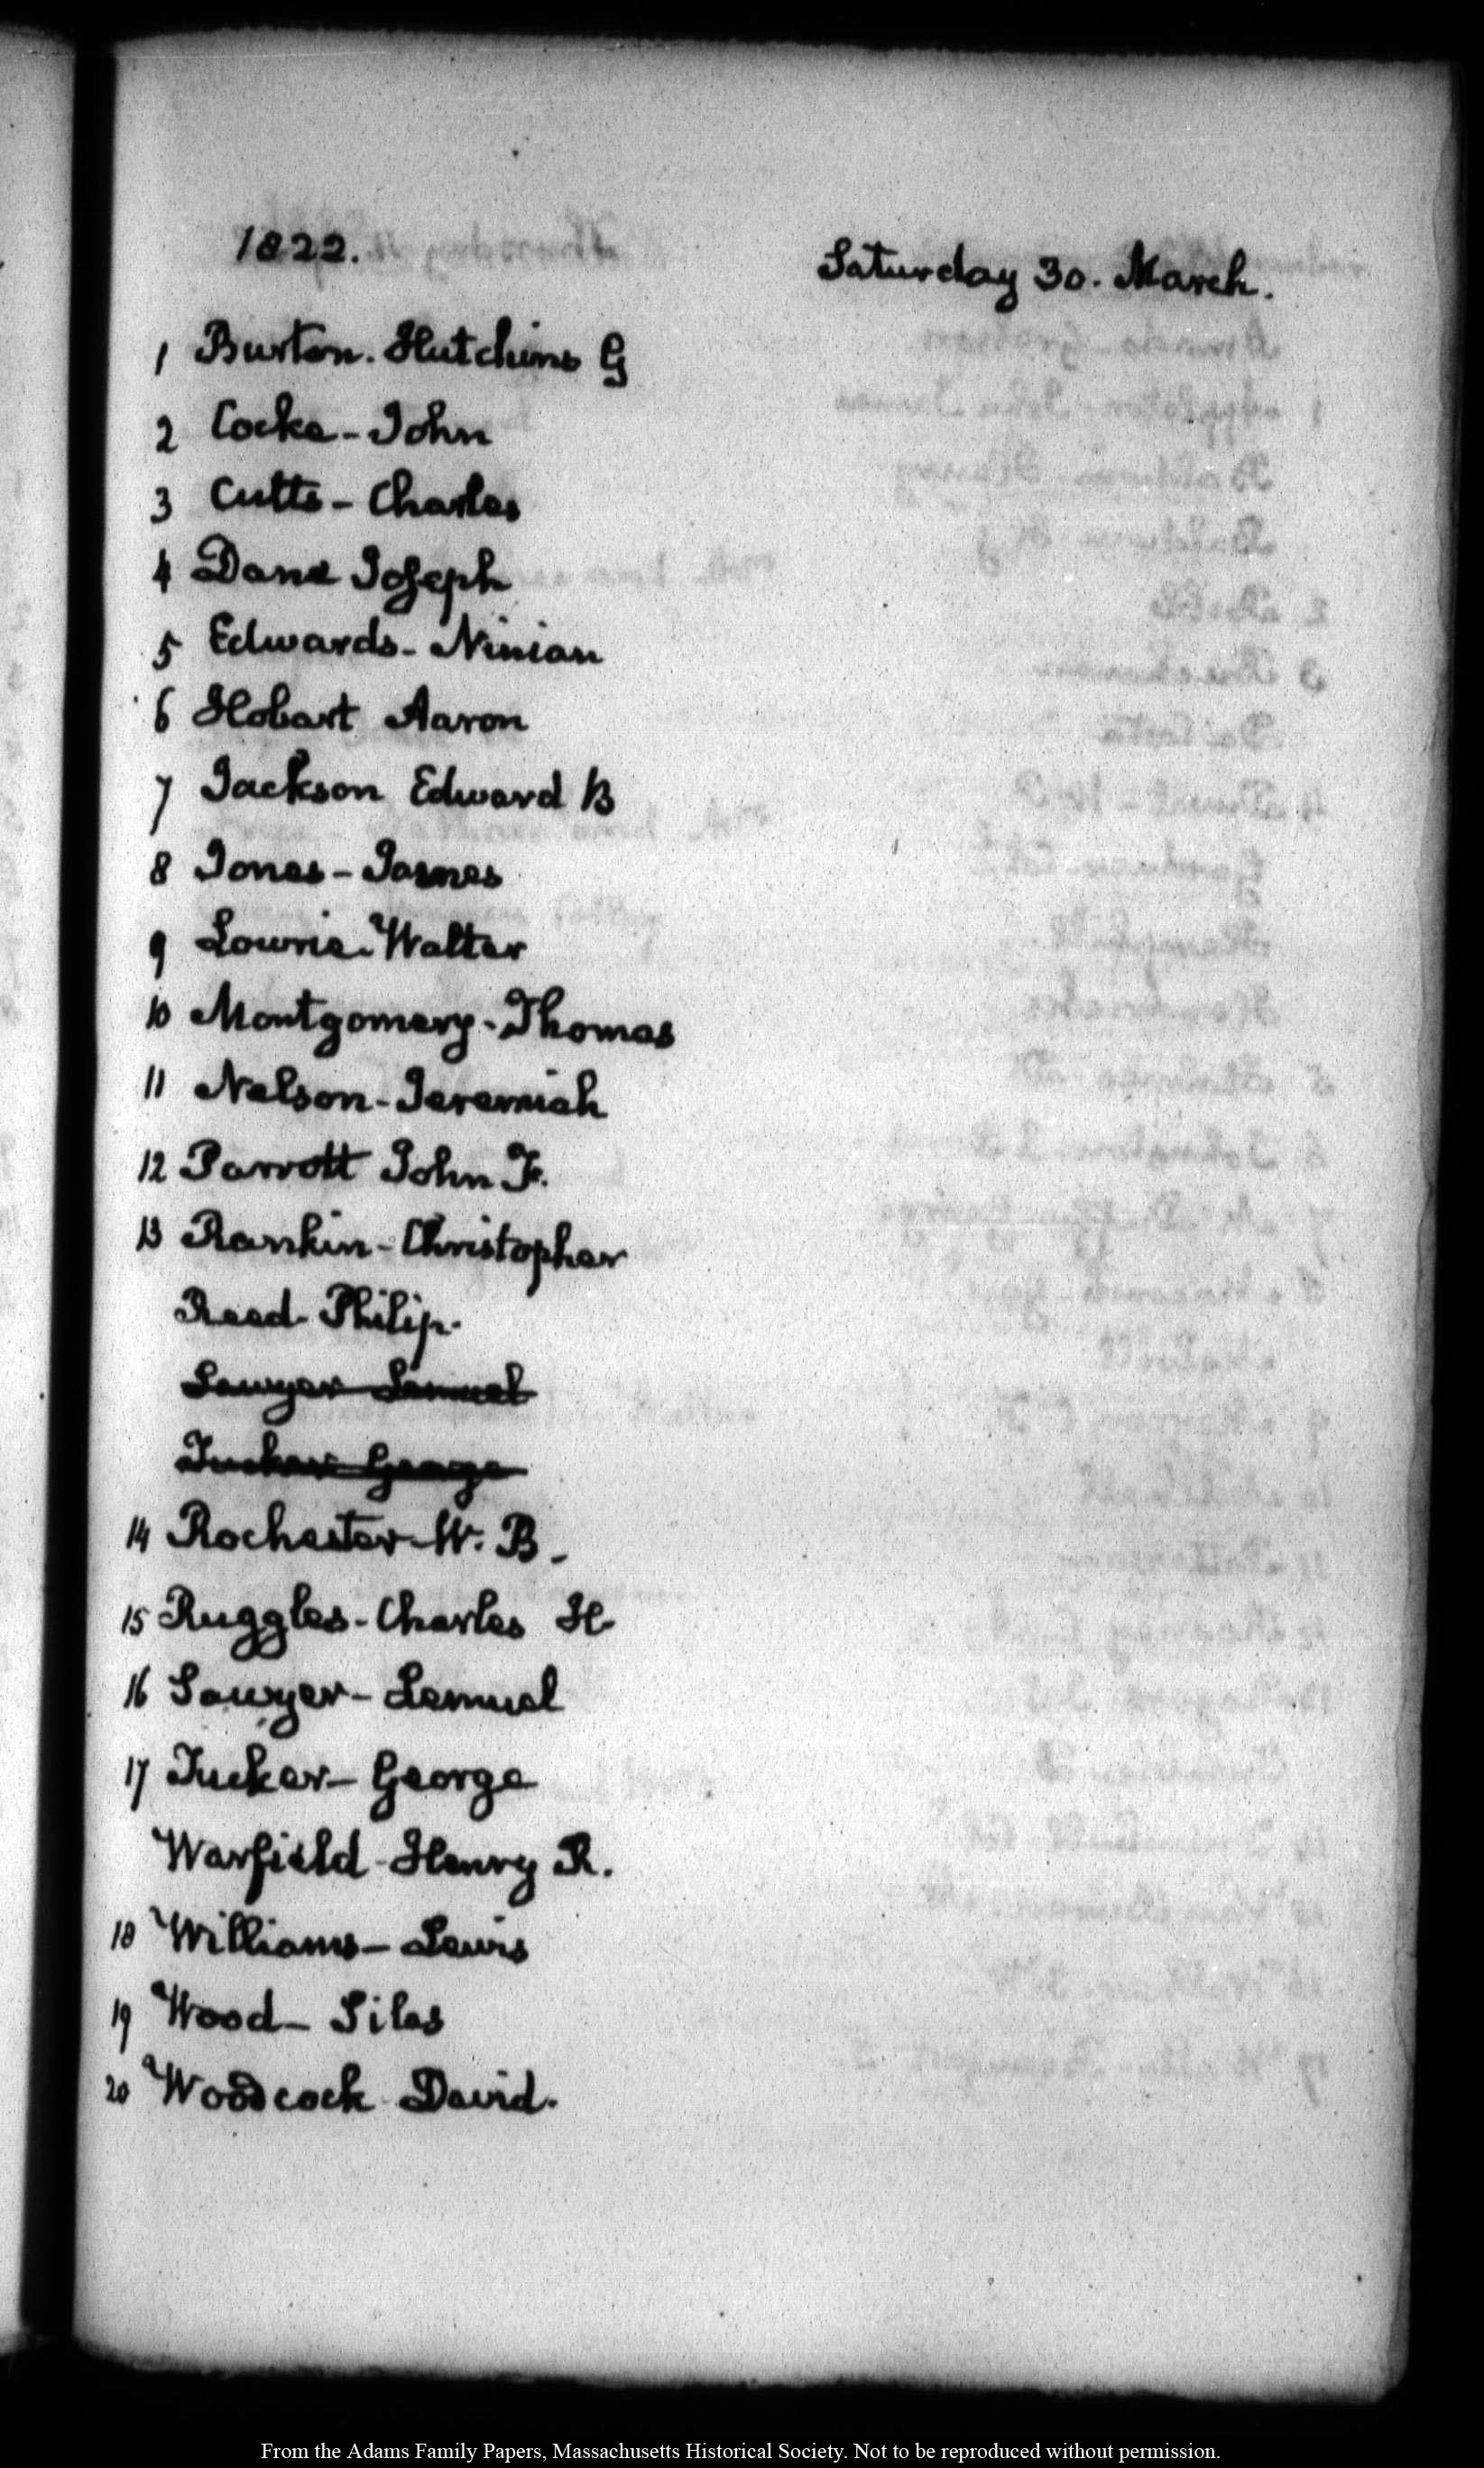 1822. Saturday 30. March.
1 Burton. Hutchins G
2 Cocke - John
3 Cutts - Charles
4 Dane Joseph
5 Edwards - Ninian
6 Hobart Aaron
7 Jackson Edward B
8 Jones - James
9 Lowrie. Walter
10 Montgomery - Thomas
11 Nelson - Jeremiah
12 Parrott John F.
13 Rankin - Christopher
Reed - Philip.
Sawyer Lemuel
Tucker George
14 Rochester W. B.
15 Ruggles - Charles H
16 Sawyer - Lemuel
17 Tucker - George
Warfield - Henry R.
18 Williams - Lewis
19 Wood - Silas
20 Woodcock David.
From the Adams Family Papers, Massachusetts Historical Society. Not to be reproduced without permission.